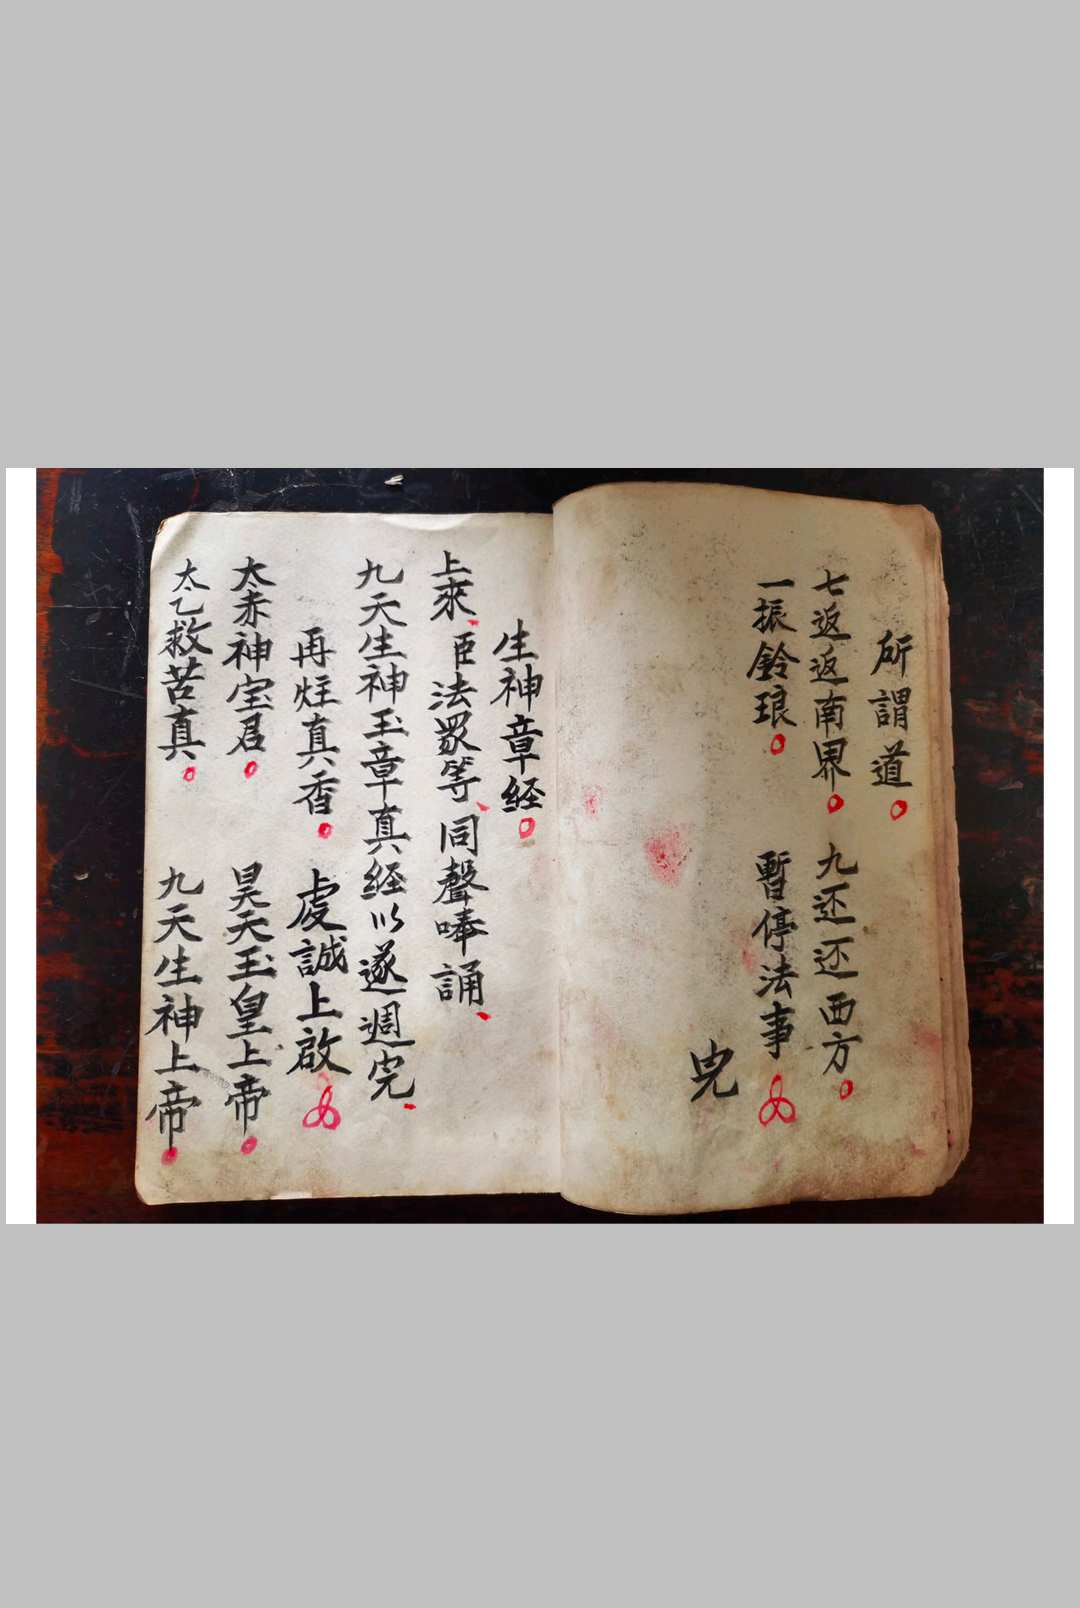 所謂道
七返返南界 九还还西方
一振鈴琅 暫停法事
完
生神章経
上來臣法眾等同聲唪誦
九天生神玉章真経以遂週完
再炷真香 虔誠上啟
太赤神宝君 昊天玉皇上帝
太乙救苦真 九天生神上帝